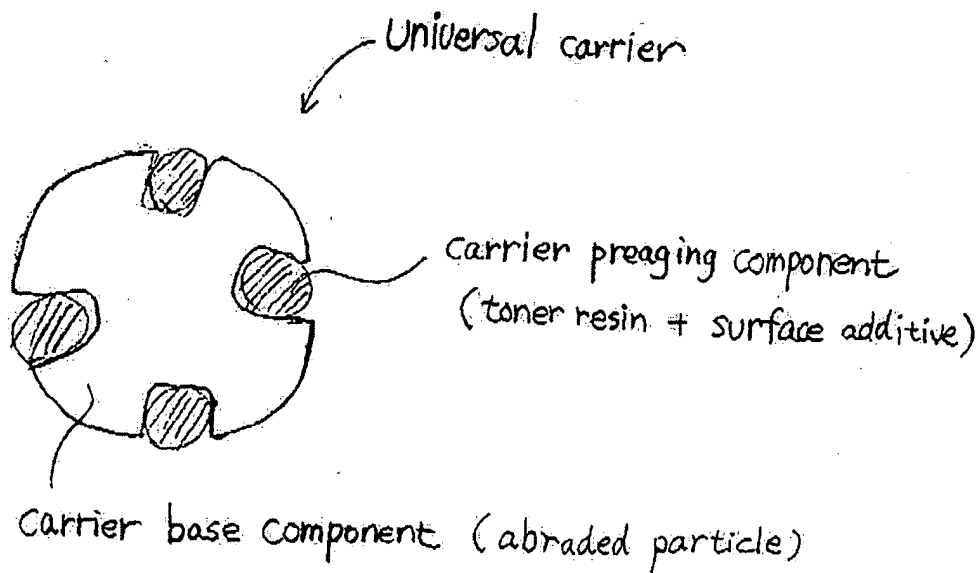 Universal carrier
carrier preaging component
(toner resin + surface additive)
carrier base component (abraded particle)